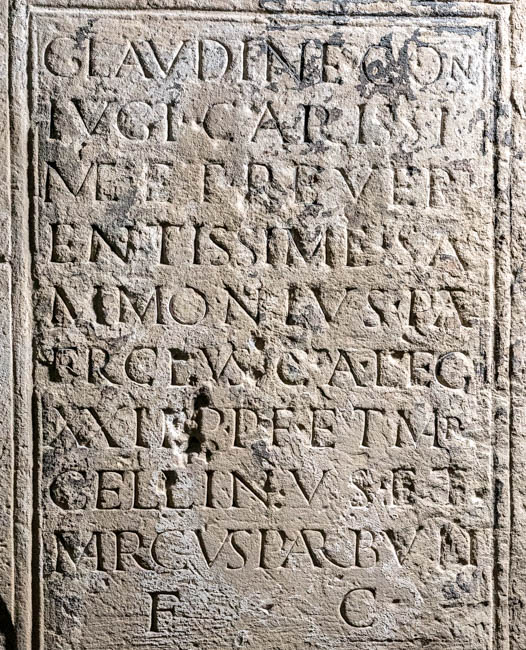 CLAVDINE CON
IVGI·CARISSI
ME ET REVER
ENTISSIME·SA
MMONIVS·PA
TERCLVS·C·A·LEG
XXII·PR·P·F·ET MAR
CELLINVS·ET
MARCVS PARVVLI
F C